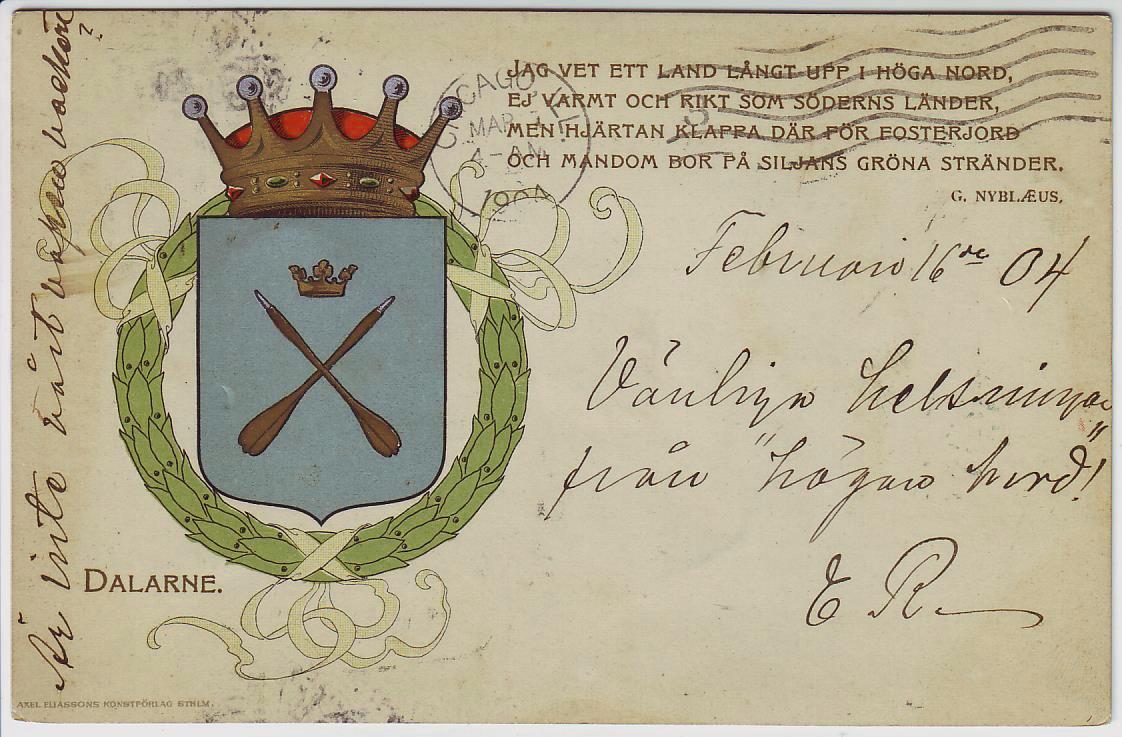 JAG VET ETT LAND LÅNGT UPP I HÖGA NORD,
EJ VARMT OCH RIKT SOM SÖDERNS LÄNDER,
MEN HJÄRTAN KLAPPA DÄR FÖR FOSTERJORD
OCH MANDOM BOR PÅ SILJANS GRÖNA STRÄNDER.
G. NYBLÆUS.
CAGO, IL
MAR
4-AM
1904
Februari 16de 04
Vänliga helsningar
från "högan nord!"
E R
Är inte vårt vapen vackert?
DALARNE.
AXEL ELIASSONS KONSTFÖRLAG STHLM.